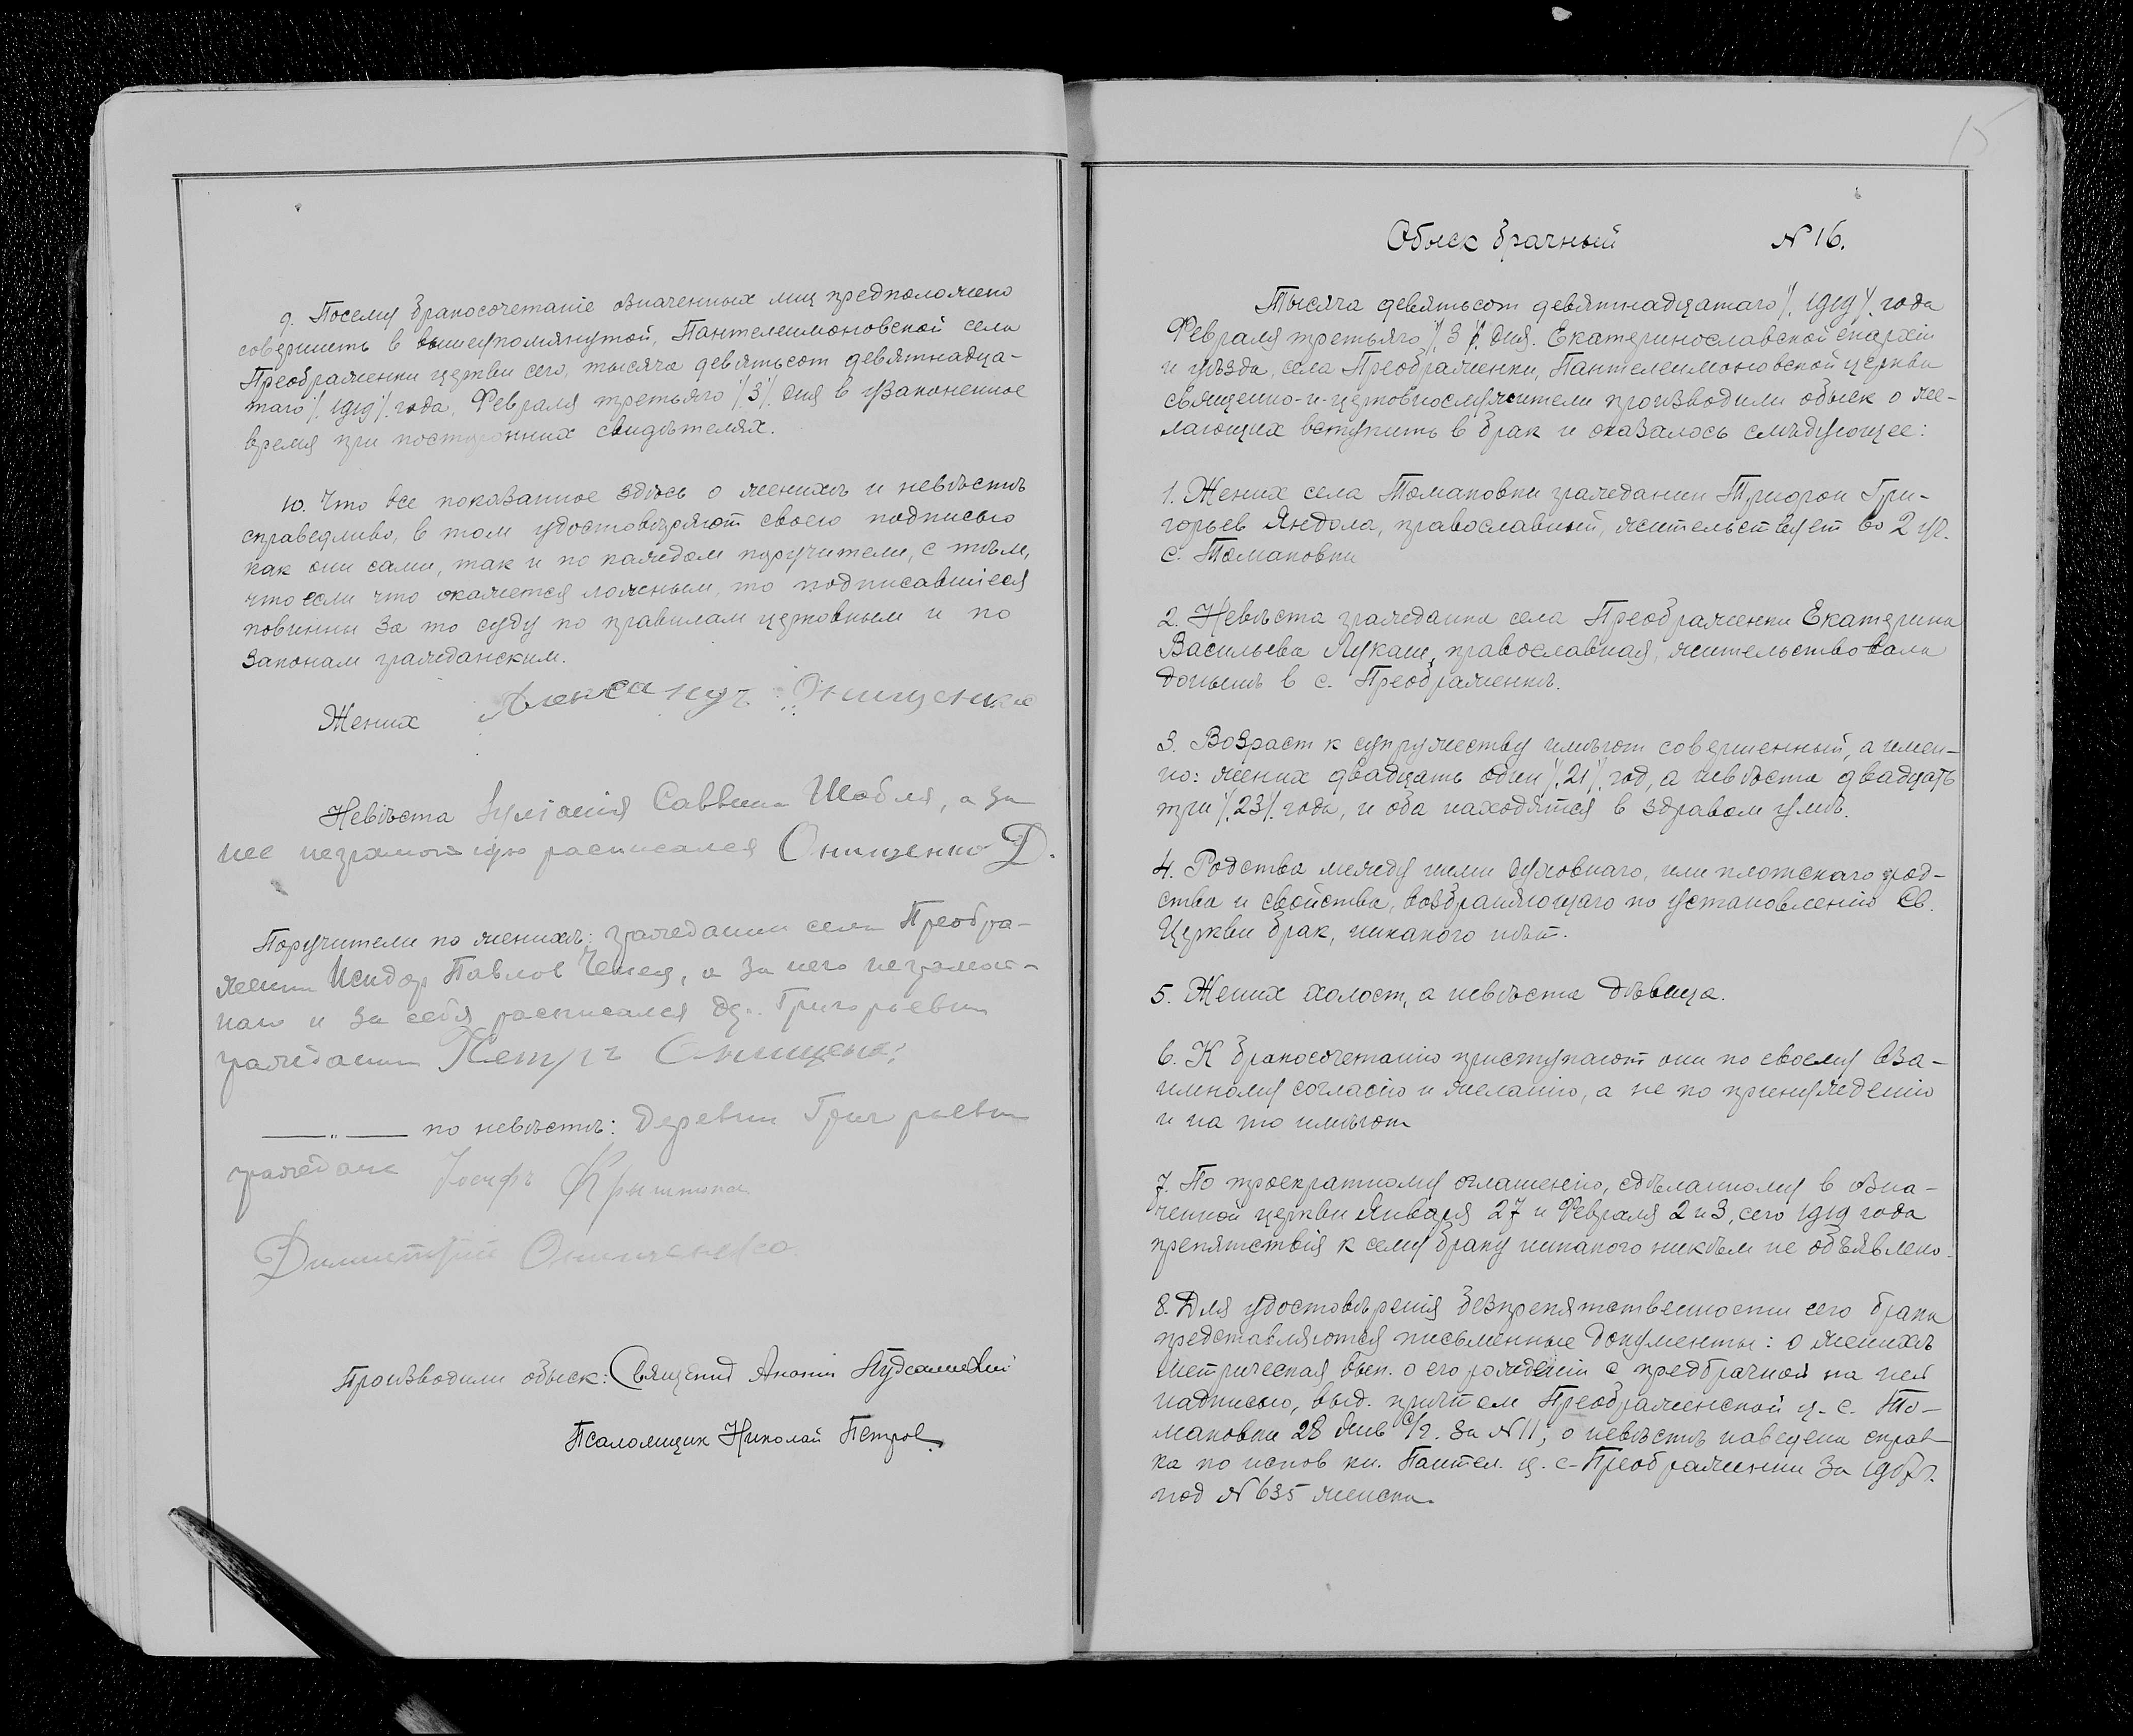 9. Посему бракосочетаніе означенных лиц предположено
совершить в вышеупомянутой, Пантелеимоновской села
Преображенки церкви сего, тысяча девятьсот девятнадца-
таго /.1919/. года, Февраля третьяго /.3/. дня в узаконенное
время при посторонних свидѣтелях.
10. Что все показанное здѣсь о женихѣ и невѣстѣ
справедливо, в том удостовѣряют своею подписью
как они сами, так и по каждом поручители, с тѣм,
что если что окажется ложным, то подписавшіеся
повинны за то суду по правилам церковным и по
законам гражданским.
Жених Александр Онищенко
Невѣста Іуліанія Саввина Шабля, а за
нее неграмотную расписался Онищенко Д.
Поручители по женихѣ: гражданин села Преобра-
женки Исидор Павлов Чепея, а за него неграмот-
наго и за себя расписался др. Григорьевки
гражданин Петръ Онищенко
—„— по невѣстѣ: Деревни Григорьевки
граждане Іосифъ Крыштопа
Димитрій Онищенко
Производили обыск: Священник Ананій
Псаломщик Николай Петров.
15
Обыск брачный N 16.
Тысяча девятьсот девятнадцатаго /.1919/. года
Февраля третьяго /.3/. дня. Екатеринославской епархіи
и уѣзда, села Преображенки, Пантелеимоновской церкви
священно-и-церковнослужители производили обыск о же-
лающих вступить в брак и оказалось слѣдующее:
1. Жених села Томаковки гражданин Трифон Гри-
горьев Яндола, православный, жительствует во 2 уч.
с. Томаковки
2. Невѣста гражданка села Преображенки Екатерина
Васильева Лукаш, православная, жительствовала
донынѣ в с. Преображенкѣ.
3. Возраст к супружеству имѣют совершенный, а имен-
но: жених двадцать один /.21/. год, а невѣста двадцать
три /.23/. года, и оба находятся в здравом умѣ.
4. Родства между ними духовнаго, или плотскаго род-
ства и свойства, возбраняющаго по установленію Св.
Церкви брак, никакого нѣт.
5. Жених холост, а невѣста дѣвица.
6. К бракосочетанію приступают они по своему вза-
имному согласію и желанію, а не по принужденію
и на то имѣют
7. По троекратному оглашенію, сдѣланному в озна-
ченной церкви Января 27 и Февраля 2 и 3, сего 1919 года
препятствія к сему браку никакого никѣм не объявлено.
8. Для удостовѣренія безпрепятственности сего брака
представляются письменные документы: о женихѣ
метрическая вып. о его рожденіи с предбрачной на ней
надписью, выд. причтем Преображенской ц. с. То-
маковки 28 Янв с/г. за N 11; о невѣстѣ наведена справ-
ка по испов кн. Пантел. ц. с-Преображенки за 1917 г.
под N 635 женск.